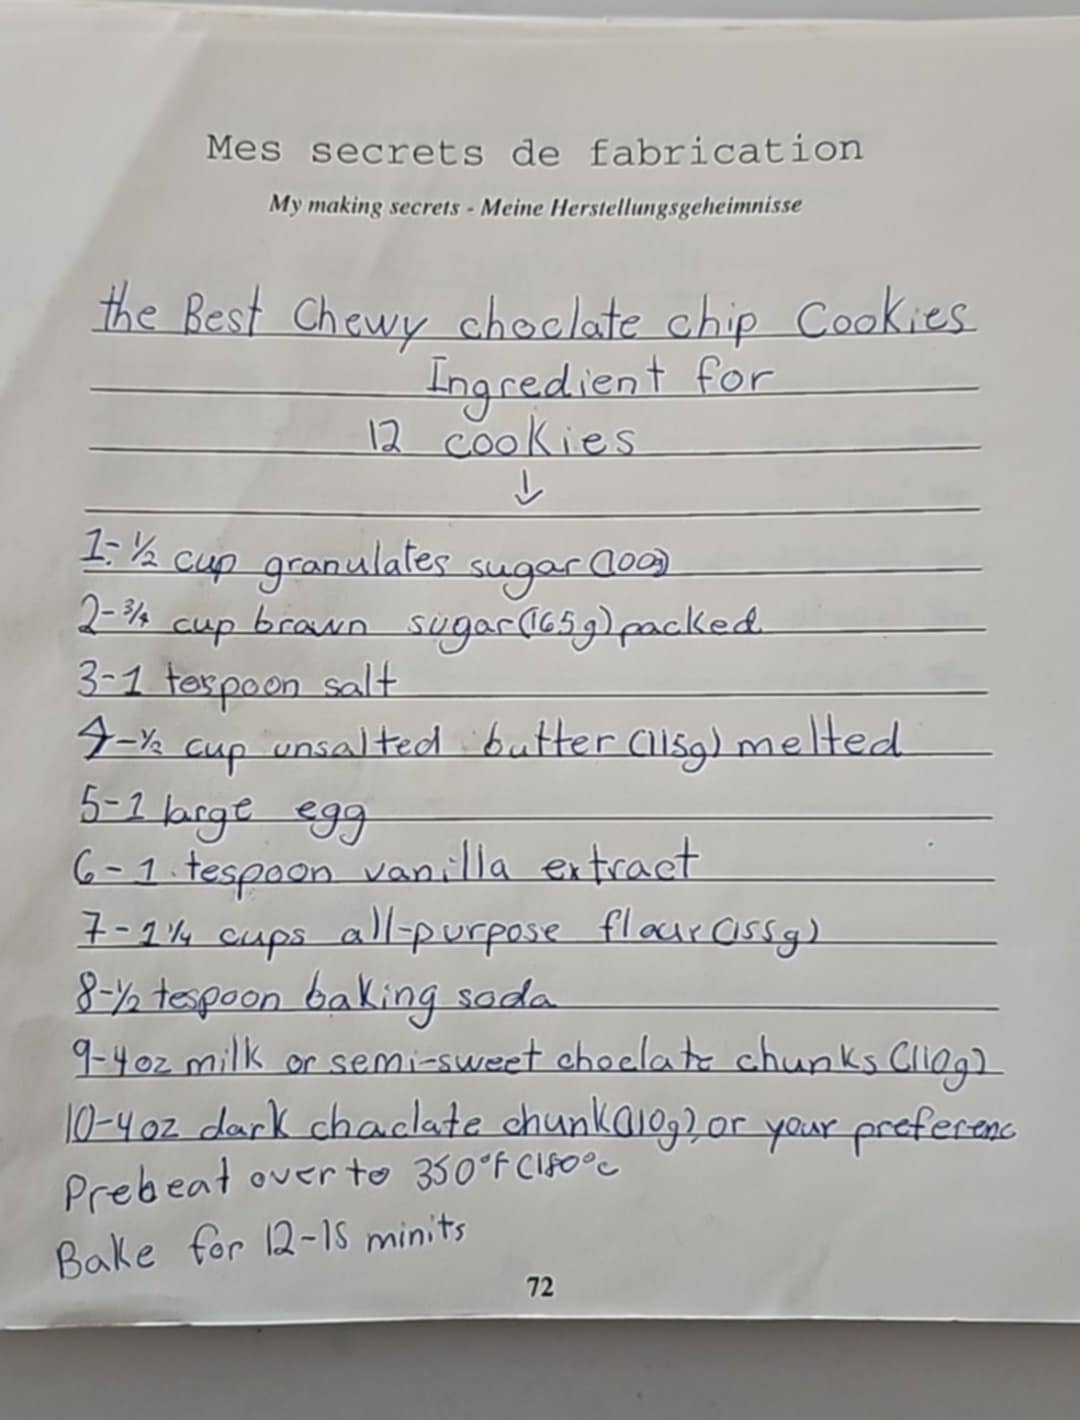 Mes secrets de fabrication
My making secrets - Meine Herstellungsgeheimnisse
the Best Chewy choclate chip Cookies
Ingredient for
12 cookies
↓
1-½ cup granulates sugar (100g)
2-¾ cup brawn sugar (165g) packed
3-1 tespoon salt
4-½ cup unsalted butter (115g) melted
5-1 large egg
6-1 tespoon vanilla extract
7-1¼ cups all-purpose flour (155g)
8-½ tespoon baking soda
9-4oz milk or semi-sweet choclate chunks (110g)
10-4 oz dark chaclate chunk (110g), or your preferenc
Prebeat over to 350°F (180°c
Bake for 12-15 minits
72